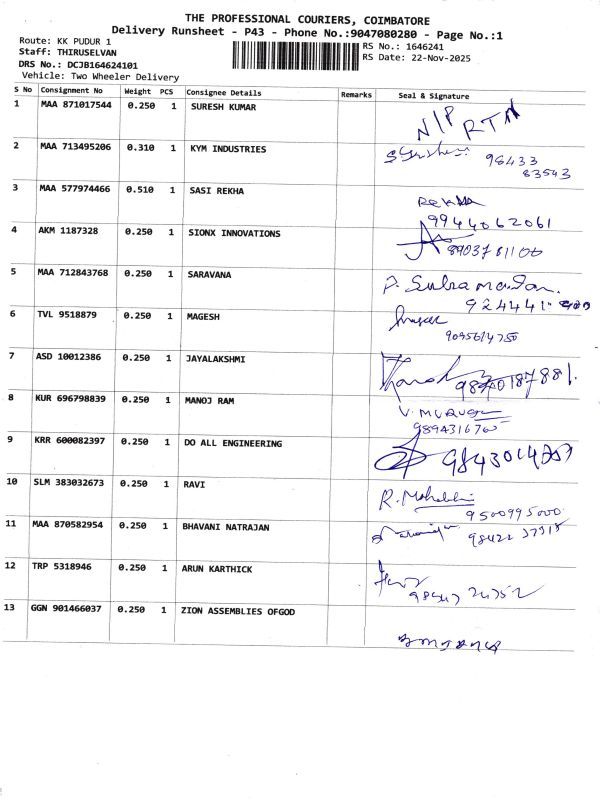 THE PROFESSIONAL COURIERS, COIMBATORE
Delivery Runsheet - P43 - Phone No.:9047080280 - Page No.:1
Route: KK PUDUR 1 RS No.: 1646241
Staff: THIRUSELVAN RS Date: 22-Nov-2025
DRS No.: DCJB164624101
Vehicle: Two Wheeler Delivery
S No Consignment No Weight PCS Consignee Details Remarks Seal & Signature
1 MAA 871017544 0.250 1 SURESH KUMAR N/P RTN
2 MAA 713495206 0.310 1 KYM INDUSTRIES 98433
83543
3 MAA 577974466 0.510 1 SASI REKHA REKHA
9944062061
4 AKM 1187328 0.250 1 SIONX INNOVATIONS
5 MAA 712843768 0.250 1 SARAVANA
6 TVL 9518879 0.250 1 MAGESH
7 ASD 10012386 0.250 1 JAYALAKSHMI
8 KUR 696798839 0.250 1 MANOJ RAM
9 KRR 600082397 0.250 1 DO ALL ENGINEERING
10 SLM 383032673 0.250 1 RAVI
9500995000
11 MAA 870582954 0.250 1 BHAVANI NATRAJAN
12 TRP 5318946 0.250 1 ARUN KARTHICK
13 GGN 901466037 0.250 1 ZION ASSEMBLIES OFGOD